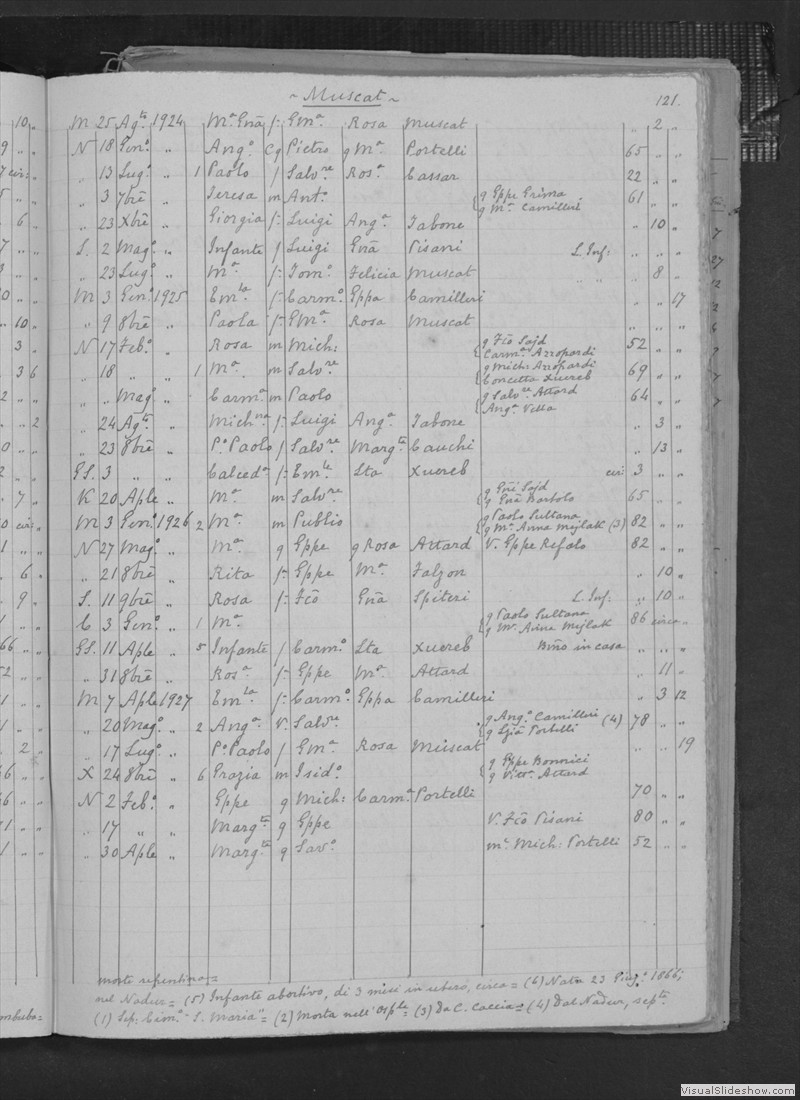 ~ Muscat ~ 121.
M 25 Agto 1924 Ma Gnã f= Gma Rosa Muscat „ 2 „
N 18 Geno „ Ango Cg Pietro g Ma Portelli 65 „ „
„ 13 Lugo „ 1 Paolo f Salvre Rosa Cassar 22 „ „
„ 3 7bre „ Teresa m Anto { g Gppe Grima g Ma Camilleri 61 „ „
„ 23 Xbre „ Giorgia f= Luigi Anga Tabone „ 10 „
S. 2 Mago „ Infante f Luigi Gnã Pisani L. Inf: „ „ „
„ 23 Lugo „ Ma f= Tomo Felicia Muscat „ 8 „
M 3 Geno 1925 Emla f= Carmo Gppa Camilleri „ „ 17
„ 9 8bre „ Paola f= Gma Rosa Muscat „ „ „
N 17 Febo „ Rosa m Mich: { g Fco Sajd Carma Azzopardi 52 „ „
„ 18 „ „ 1 Ma m Salvre { g Mich: Azzopardi Concetta Xuereb 69 „ „
„ „ Mago „ Carma m Paolo { g Salvre Attard Anga Vella 64 „ „
„ 24 Agto „ Michna f= Luigi Anga Tabone „ 3 „
„ 23 8bre „ P. Paolo f Salvre Margta Cauchi „ 13 „
GS. 3 „ „ Calceda f= Emle Lta Xuereb cir: 3 „ „
K 20 Aple „ Ma m Salvre { g Gnẽ Sajd g Gnã Bartolo 65 „ „
M 3 Geno 1926 2 Ma m Publio { g Paolo Sultana g Ma Anna Mijlak (3) 82 „ „
N 27 Mago „ Ma g Gppe g Rosa Attard V. Gppe Refalo 82 „ „
„ 21 8bre „ Rita f= Gppe Ma Falzon „ 10 „
S. 11 9bre „ Rosa f= Fco Gnã Spiteri L. Inf: „ 10 „
C 3 Geno „ 1 Ma { g Paolo Sultana g Ma Anna Mijlak 86 circa „
GS. 11 Aple „ 5 Infante f Carmo Lta Xuereb Bñto in casa „ „ „
„ 31 8bre „ Rosa f= Gppe Ma Attard „ 11 „
M 7 Aple 1927 Emla f= Carmo Gppa Camilleri „ 3 12
„ 20 Mago „ 2 Anga V. Salvre { g Ango Camilleri g Portelli (4) 78 „ „
„ 17 Lugo „ P. Paolo f Gma Rosa Muscat „ „ 19
X 24 8bre „ 6 Grazia m Isido { g Gppe Bonnici g Vitta Attard
N 2 Febo „ Gppe g Mich: Carma Portelli 70 „ „
„ 17 „ „ Margta g Gppe V. Fco Pisani 80 „ „
„ 30 Aple „ Margta g Savo m. Mich: Portelli 52 „ „
morte repentina =
nel Nadur = (5) Infante abortivo, di 3 mesi in utero, circa = (6) Nata 23 Giugo 1866;
(1) Sep: Cimo "S. Maria" = (2) Morta nell'Osple = (3) Da C. Caccia = (4) Dal Nadur, septa
VisualSlideshow.com